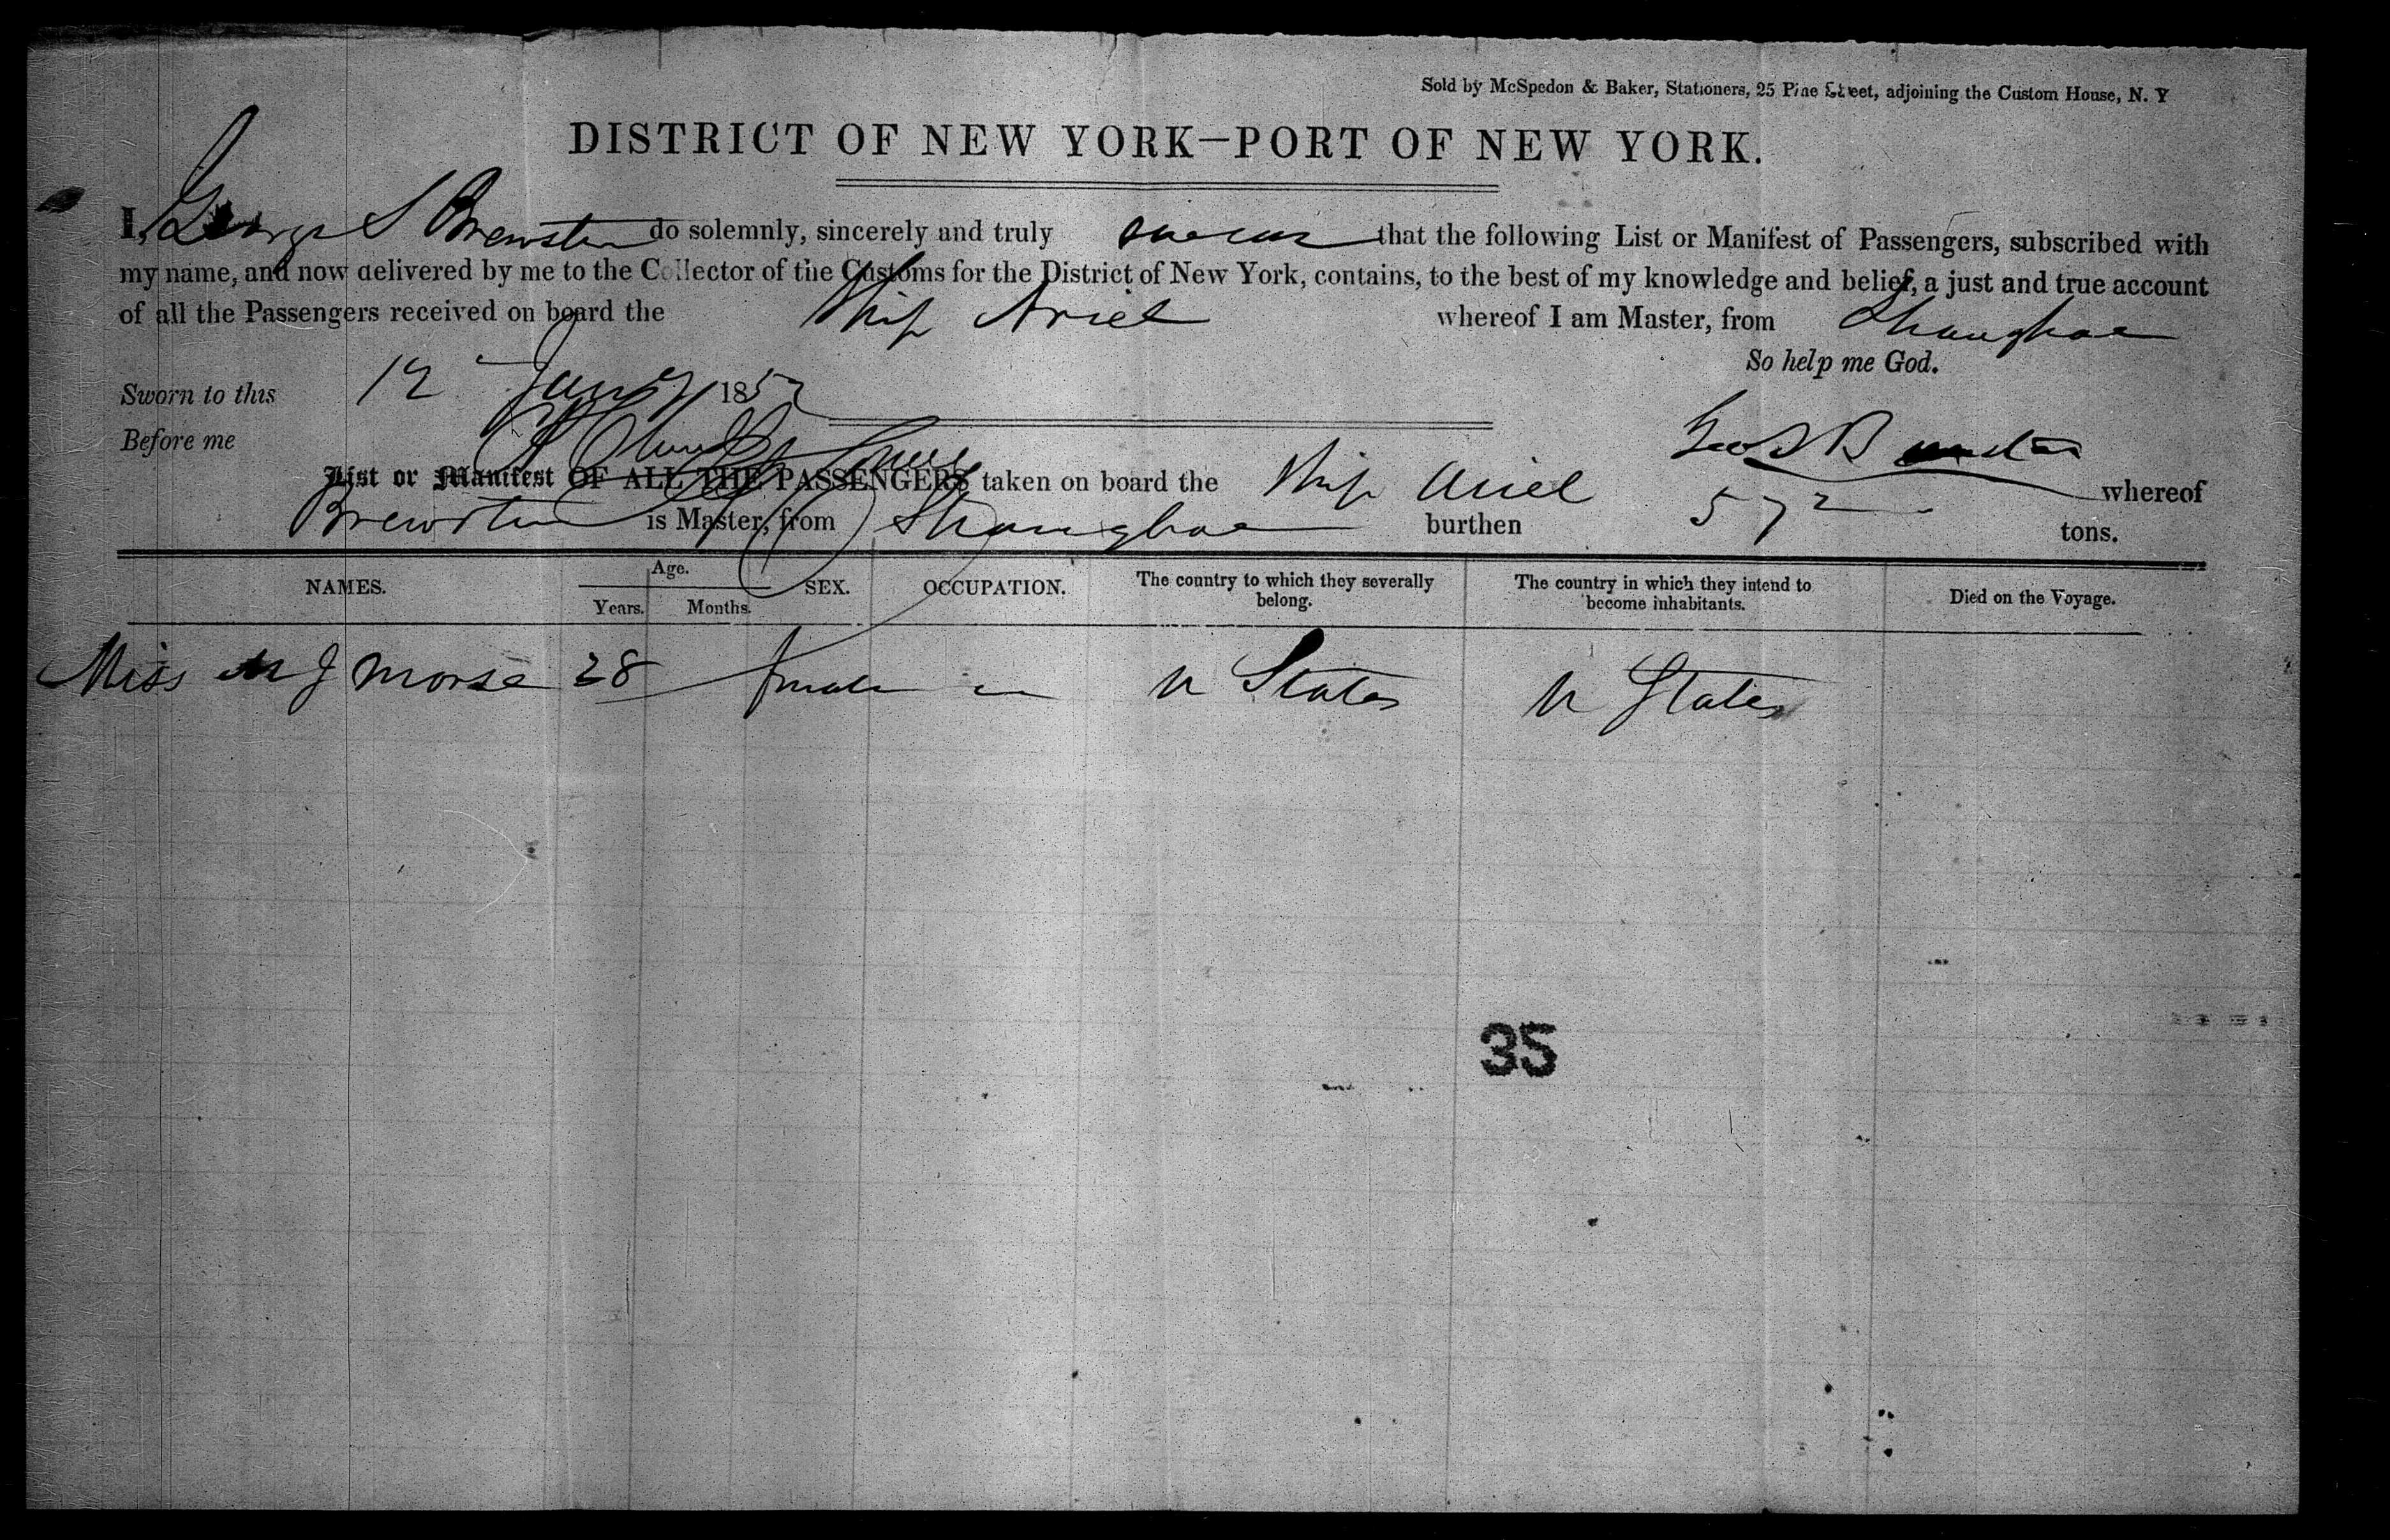 Sold by McSpedon & Baker, Stationers, 25 Pine Street, adjoining the Custom House, N. Y
DISTRICT OF NEW YORK—PORT OF NEW YORK.
I, George S Brewster do solemnly, sincerely and truly swear that the following List or Manifest of Passengers, subscribed with
my name, and now delivered by me to the Collector of the Customs for the District of New York, contains, to the best of my knowledge and belief, a just and true account
of all the Passengers received on board the Ship Ariel whereof I am Master, from Shanghae
So help me God.
Sworn to this 12 Jany 1852
Before me
Geo S Brewster
List or Manifest OF ALL THE PASSENGERS taken on board the Ship Ariel whereof
Brewster is Master, from Shanghae burthen 572 tons.
NAMES. Age. Years. Months. SEX. OCCUPATION. The country to which they severally belong. The country in which they intend to become inhabitants. Died on the Voyage.
Miss M J Morse 28 female — U States U States
35